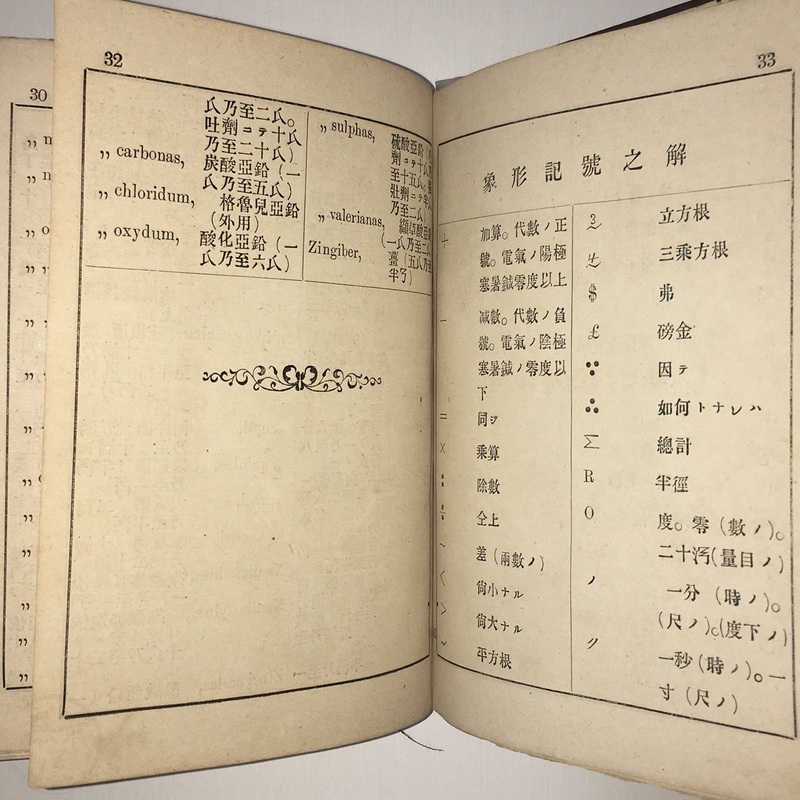 30
32
氏乃至二氏。
吐劑コテ十氏
乃至二十氏)
„ carbonas, 炭酸亞鉛 (一
氏乃至五氏)
„ chloridum, 格魯兒亞鉛
(外用)
„ oxydum, 酸化亞鉛 (一
氏乃至六氏)
„ sulphas, 硫酸亞鉛
劑コテ十
至十五氏。
壯劑コテ
乃至二氏)
„ valerianas, 纈草酸亞
(一氏乃至二
Zingiber, 薑 (五氏乃至
半弓)
33
象形記號之解
+ 加算。代數ノ正
號。電氣ノ陽極
寒暑鍼零度以上
− 減數。代數ノ負
號。電氣ノ陰極
寒暑鍼ノ零度以
下
= 同ヲ
× 乘算
: 除數
÷ 仝上
~ 差 (兩數ノ)
< 尙小ナル
> 尙大ナル
平方根
立方根
三乘方根
$ 弗
£ 磅金
∵ 因テ
∴ 如何トナレハ
Σ 總計
R 半徑
O 度。零 (數ノ)。
二十沔(量目ノ)
ノ 一分 (時ノ)。
(尺ノ)。(度下ノ)
〃 一秒 (時ノ)。一
寸 (尺ノ)